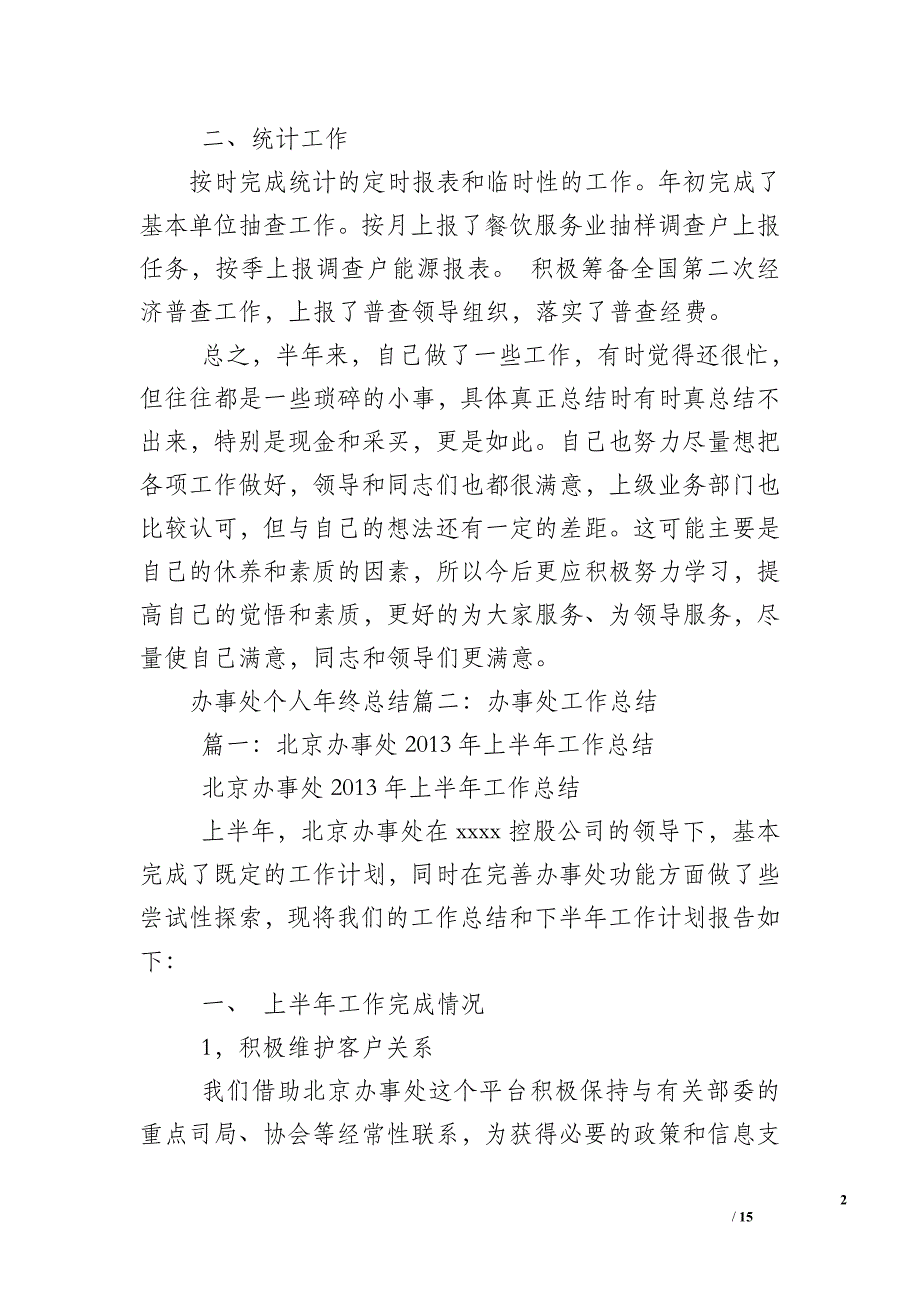 二、统计工作
按时完成统计的定时报表和临时性的工作。年初完成了
基本单位抽查工作。按月上报了餐饮服务业抽样调查户上报
任务，按季上报调查户能源报表。 积极筹备全国第二次经
济普查工作，上报了普查领导组织，落实了普查经费。
总之，半年来，自己做了一些工作，有时觉得还很忙，
但往往都是一些琐碎的小事，具体真正总结时有时真总结不
出来，特别是现金和采买，更是如此。自己也努力尽量想把
各项工作做好，领导和同志们也都很满意，上级业务部门也
比较认可，但与自己的想法还有一定的差距。这可能主要是
自己的休养和素质的因素，所以今后更应积极努力学习，提
高自己的觉悟和素质，更好的为大家服务、为领导服务，尽
量使自己满意，同志和领导们更满意。
办事处个人年终总结篇二：办事处工作总结
篇一：北京办事处 2013 年上半年工作总结
北京办事处 2013 年上半年工作总结
上半年，北京办事处在 xxxx 控股公司的领导下，基本
完成了既定的工作计划，同时在完善办事处功能方面做了些
尝试性探索，现将我们的工作总结和下半年工作计划报告如
下：
一、 上半年工作完成情况
1，积极维护客户关系
我们借助北京办事处这个平台积极保持与有关部委的
重点司局、协会等经常性联系，为获得必要的政策和信息支
2
/ 15